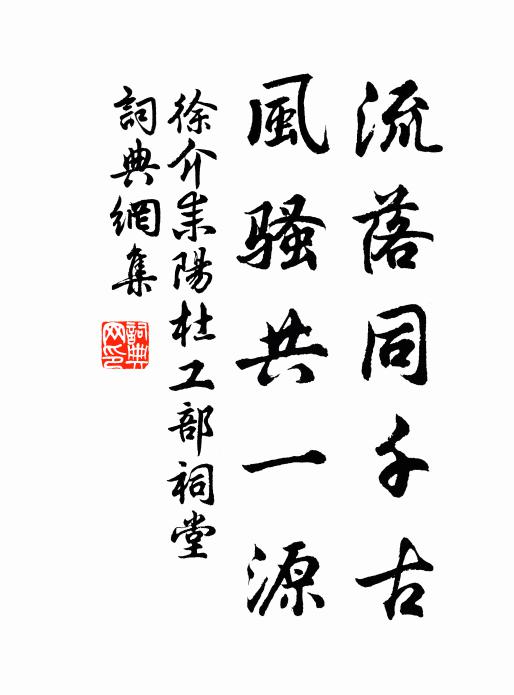 流落同千古
風騷共一源
徐介耒陽杜工部祠堂
詞典網集
詞典網印